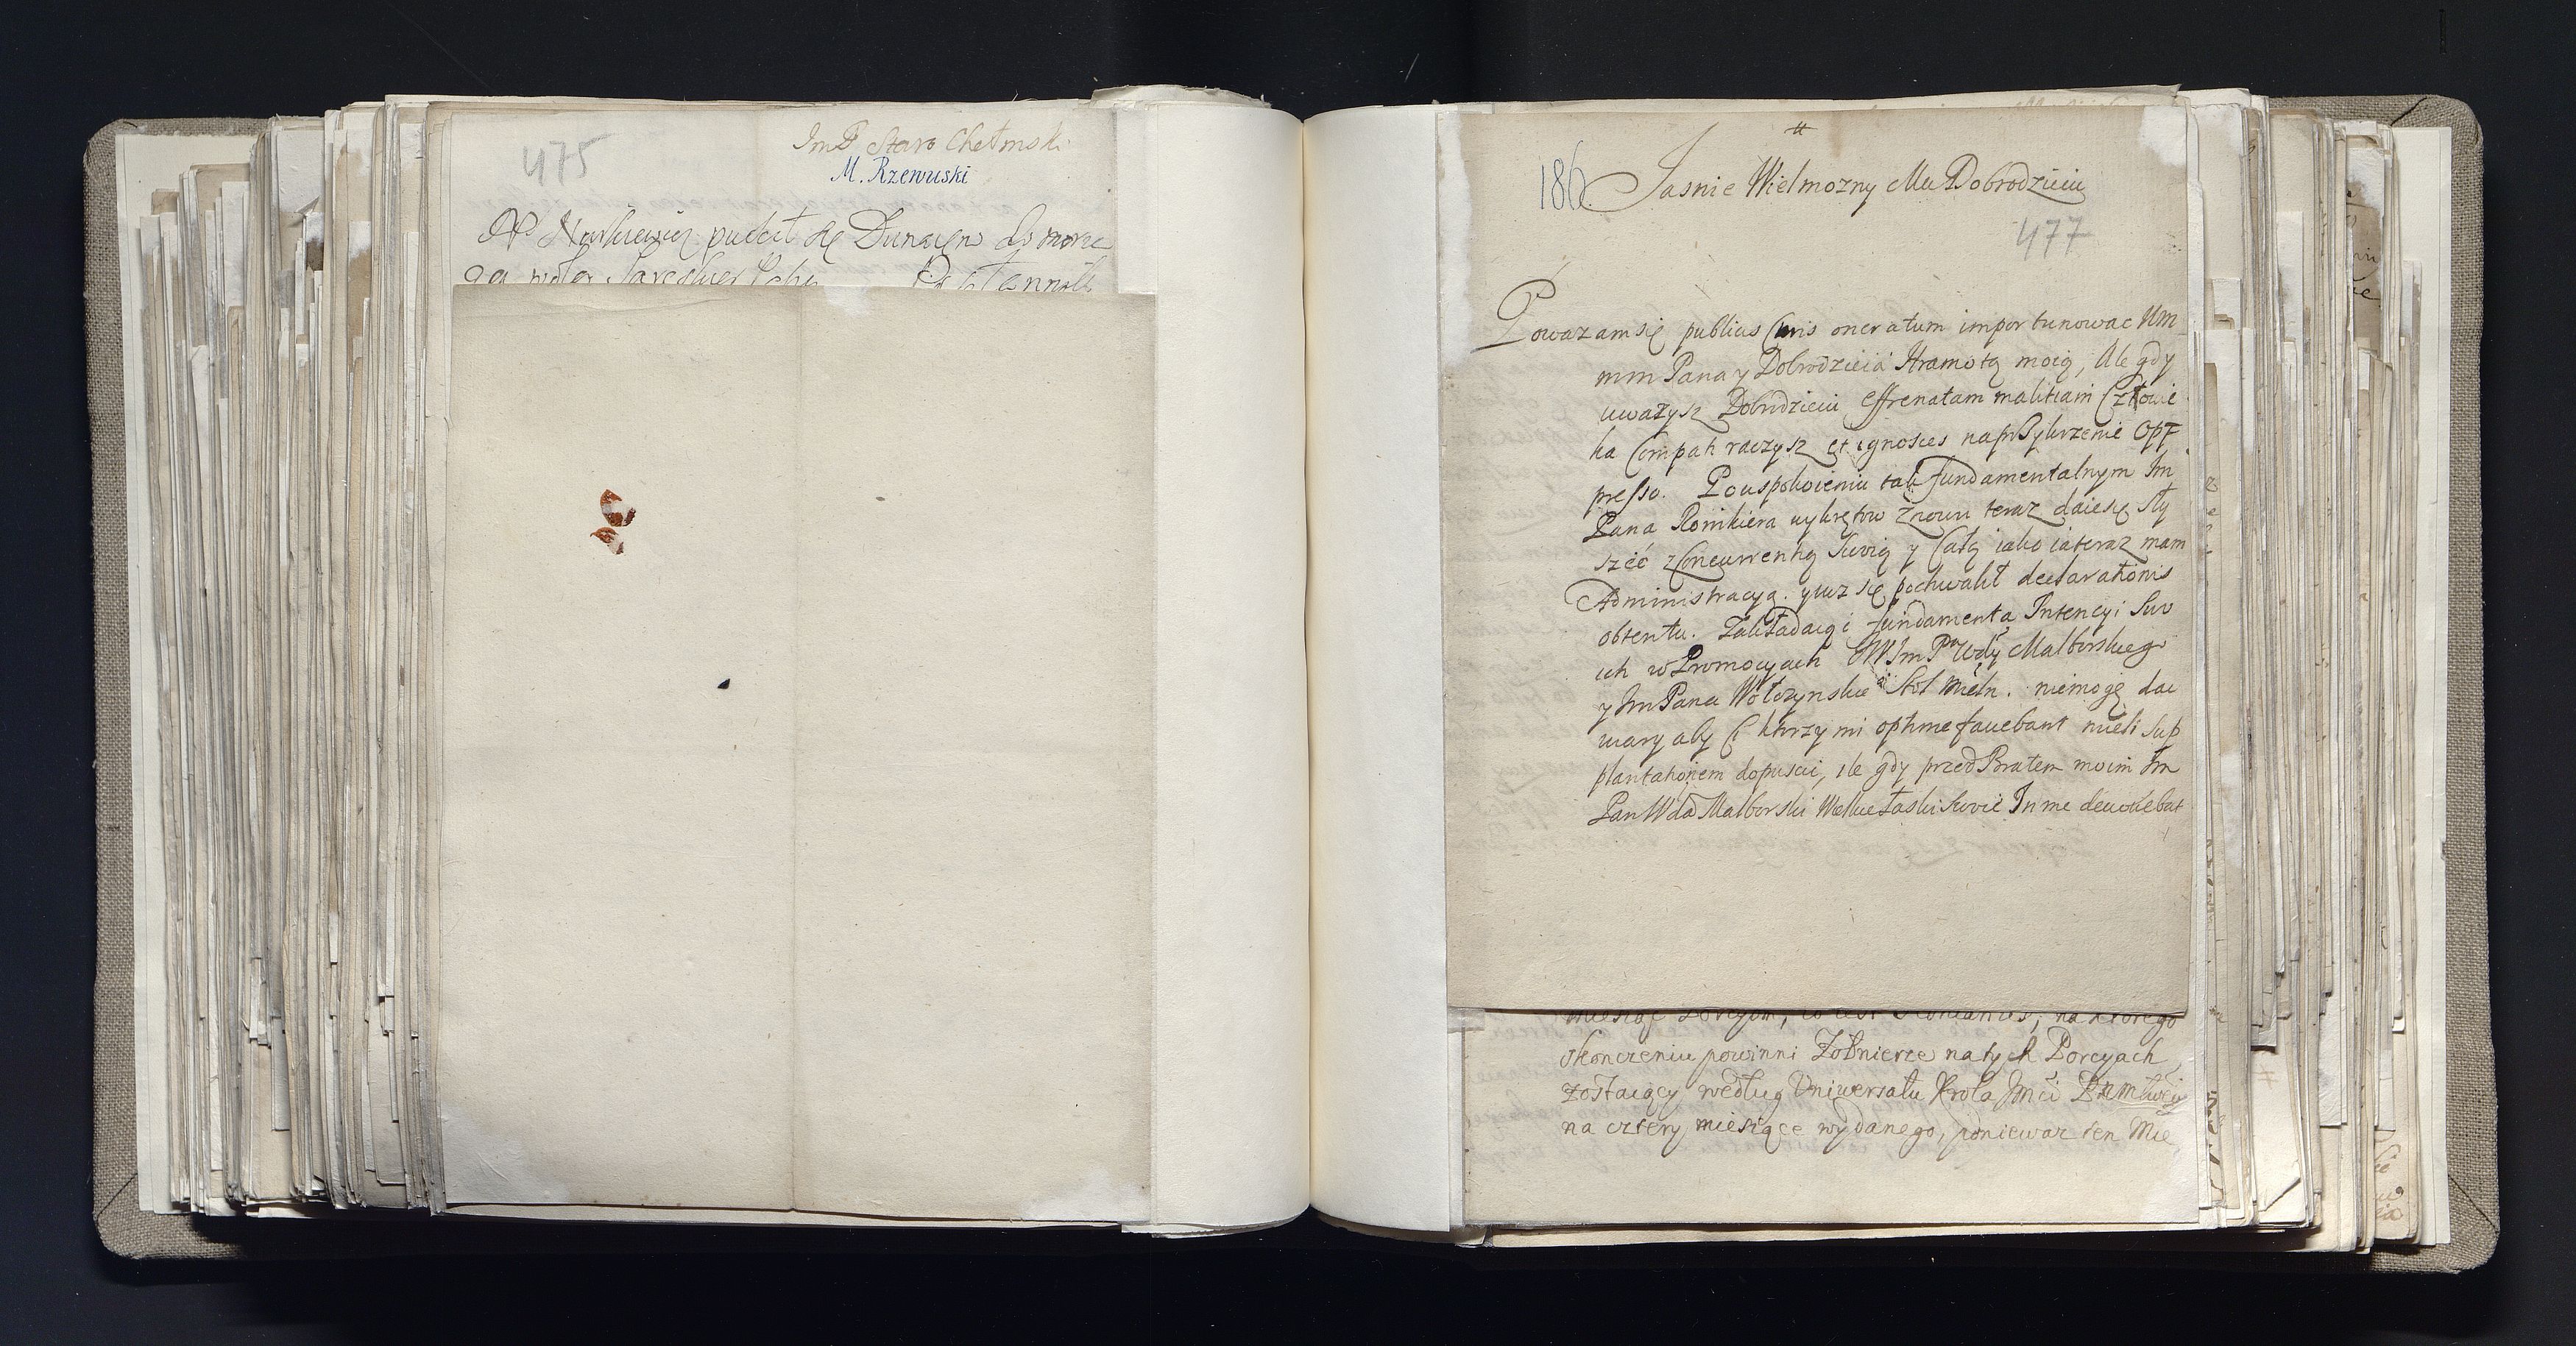 475
JmP Staro Chełmski
M. Rzewuski
puścił się Dunajem do morza
186
Jasnie Wielmozny Mci Dobrodzieiu
477
Powazam się publicis Curis oneratum importunowac Wm
mm Pana y Dobrodzieia Hramotą moią, Ale gdy
uwazysz Dobrodzieiu effrenatam malitiam Człowie
ka Compati raczysz et ignosces naprzykrzenie Opp
presso. Po uspokoieniu tak fundamentalnym Jm
Pana Ronikiera wykrętow znowu teraz daie się Sły
szeć z Concurrentią Swoią y Całą iako ia teraz mam
Administracyą. y iuz się pochwalił declarationis
obtentu. Zakładaiąc fundamenta Intencyi Swo
ich w Promocyach JWJm Pa Wdy Malborskiego
y Jm Pana Wołczynskie Stol Mieln. niemogę dac
wiary aby Ci ktorzy mi optime fauebant mieli Sup
plantationem dopuscic, ile gdy przed Bratem moim Jm
Pan Wda Malborski Wielkie Łaski Swoie In me deuouebat
miesiąc Porcyom, na ktorego
skonczeniu powinni Zołnierze na tych Porcyach
zostaiący według Uniwersału Krola Jmci
na cztery miesiące wydanego, poniewaz ten Mie